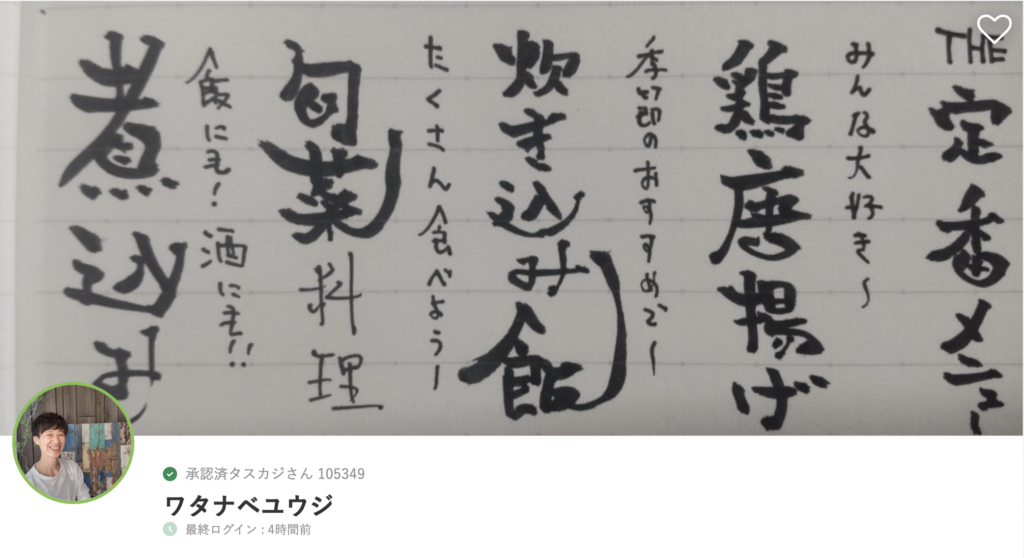 THE 定番メニュー
みんな大好き〜
鶏唐揚げ
季節のおすすめで〜
炊き込み飯
たくさん食べよう〜
旬菜料理
飯にも！酒にも！！
煮込み
承認済タスカジさん 105349
ワタナベユウジ
最終ログイン : 4時間前